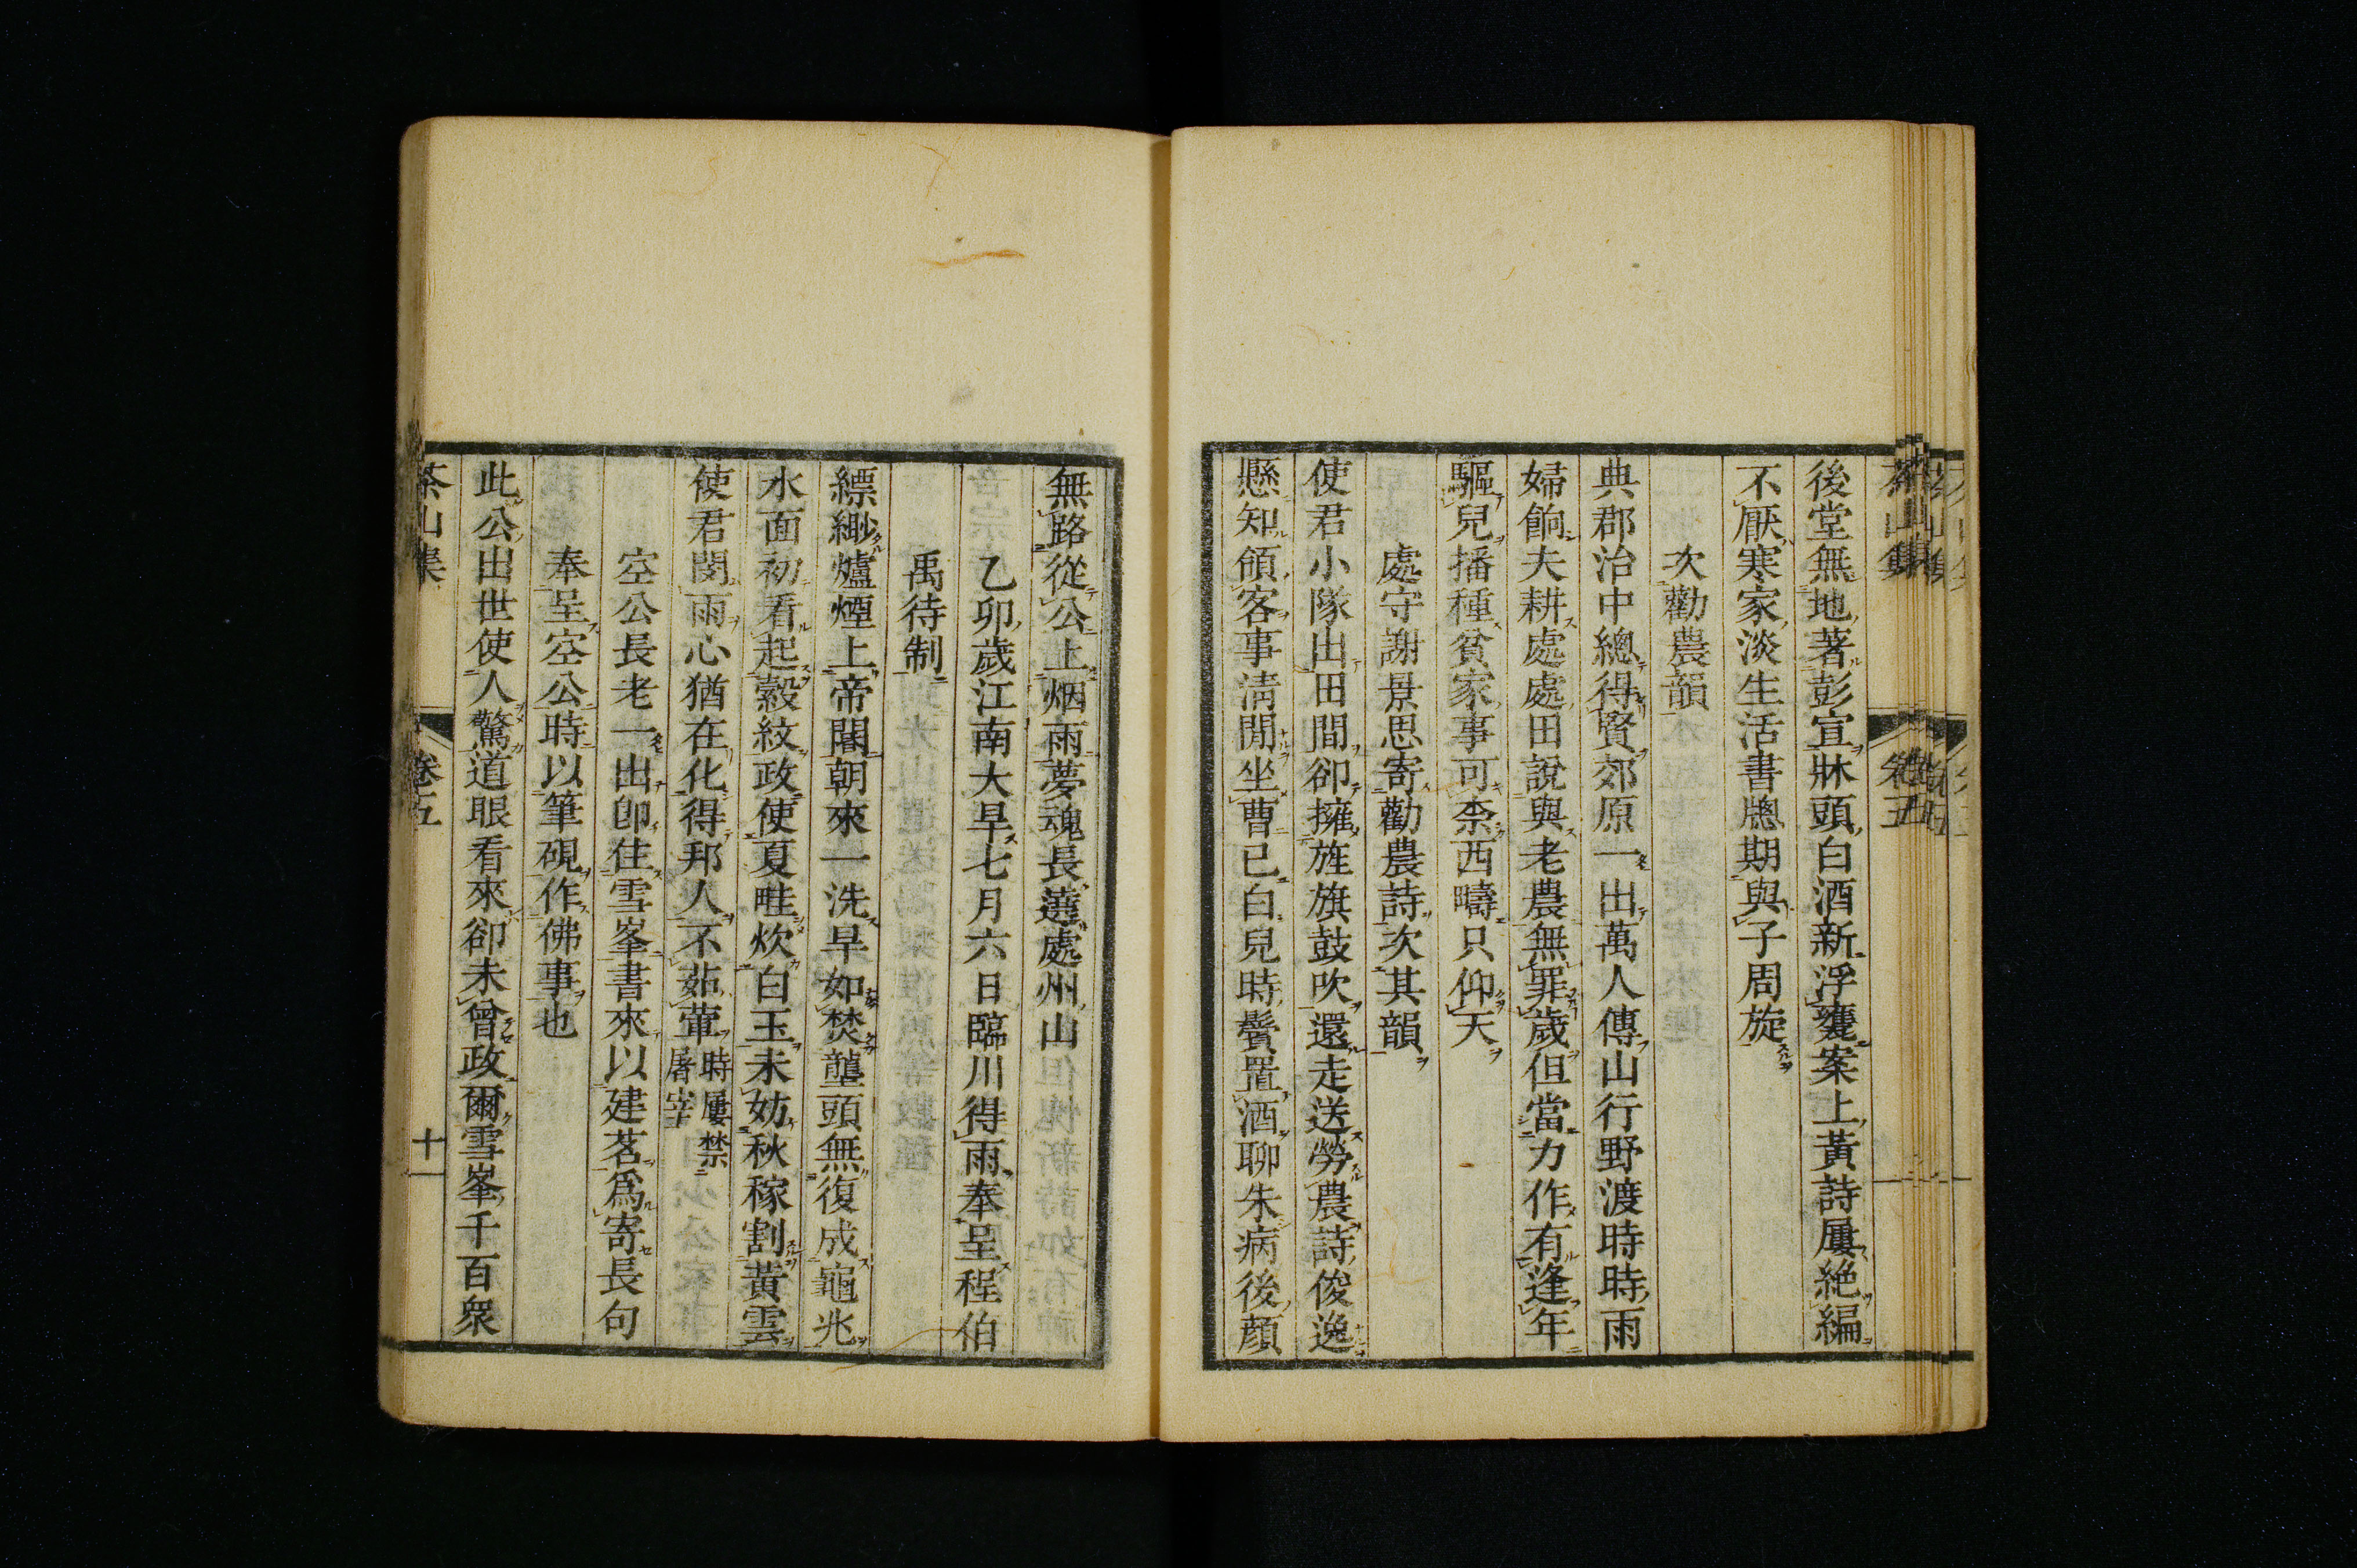 後堂無地著彭宣牀頭白酒新浮甕案上黃詩屢絶編
不厭寒家淡生活書牕期與子周旋
次勸農韻
典郡治中總得賢郊原一出萬人傳山行野渡時時雨
婦餉夫耕處處田說與老農無罪歲但當力作有逢年
驅兒播種貧家事可柰西疇只仰天
處守謝景思寄勸農詩次其韻
使君小隊出田間卻擁旌旗鼓吹還走送勞農詩俊逸
懸知領客事淸閒坐曹已白兒時鬢置酒聊朱病後顔
無路從公上烟雨夢魂長遶處州山
乙卯歲江南大旱七月六日臨川得雨奉呈程伯
禹待制
縹緲爐煙上帝閽朝來一洗旱如焚壟頭無復成龜兆
水面初看起縠紋政使夏畦炊白玉未妨秋稼割黃雲
使君閔雨心猶在化得邦人不茹葷時屢禁
屠宰
空公長老一出卽住雪峯書來以建茗爲寄長句
奉呈空公時以筆硯作佛事也
此公出世使人驚道眼看來卻未曾政爾雪峯千百衆
茶山集 卷五 十一